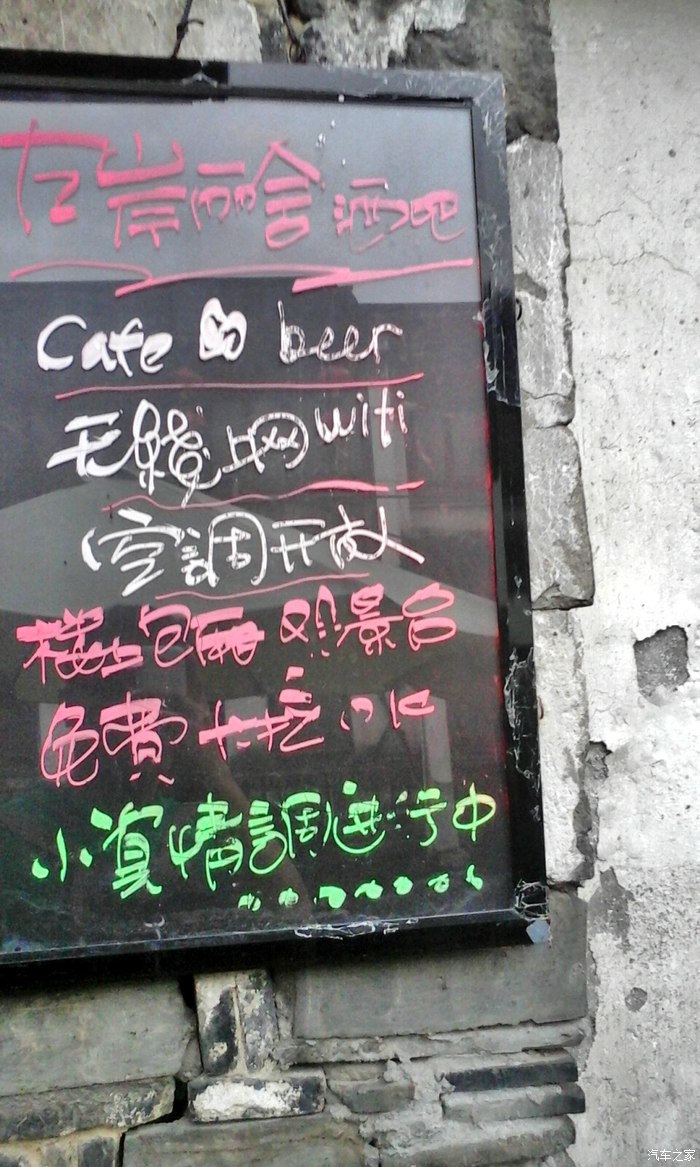 左岸丽舍 酒吧
Cafe beer
无線上网 wifi
空調开放
楼上包厢 观景台
免費卡拉OK
小資情調進行中
.......
汽车之家